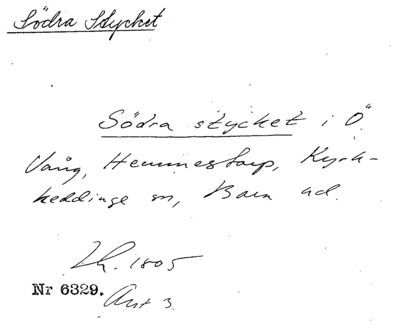 Södra Stycket
Södra stycket i Ö
Vång, Hemmestorp, Kyrk-
heddinge sn, Bara hd.
Lh. 1805
Nr 6329.
Akt 3